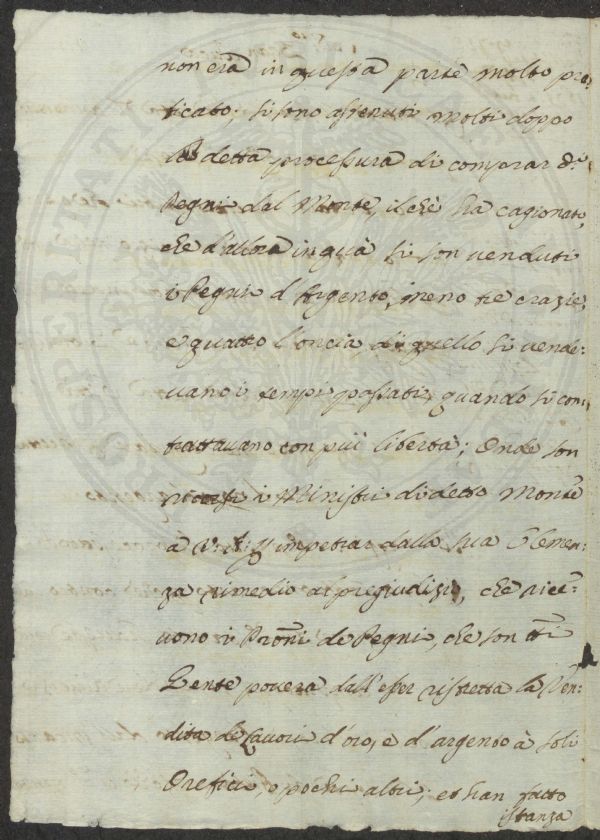 non era in questa parte molto pra
ticato; si sono astenuti molti doppo
la detta processura di comprar d.i
Pegni dal Monte, il che ha cagionato,
che d'allora in quà si son venduti
i Pegni d'Argento, meno tre crazie,
e quatto l'oncia, di quello si vende:
vano i tempi passati, quando si con,
trattavano con più libertà; Onde son
ricorsi i Ministri di detto Monte
à V. A. p impetrar dalla sua Clemen:
za rimedio al pregiudizio, che rice:
vono i Proni de Pegni, che son tti
Gente povera dall'esser ristretta la Ven:
dita de Lavori d'oro, e d'argento à soli
Orefici, o pochi altri; et han fatto
istanza